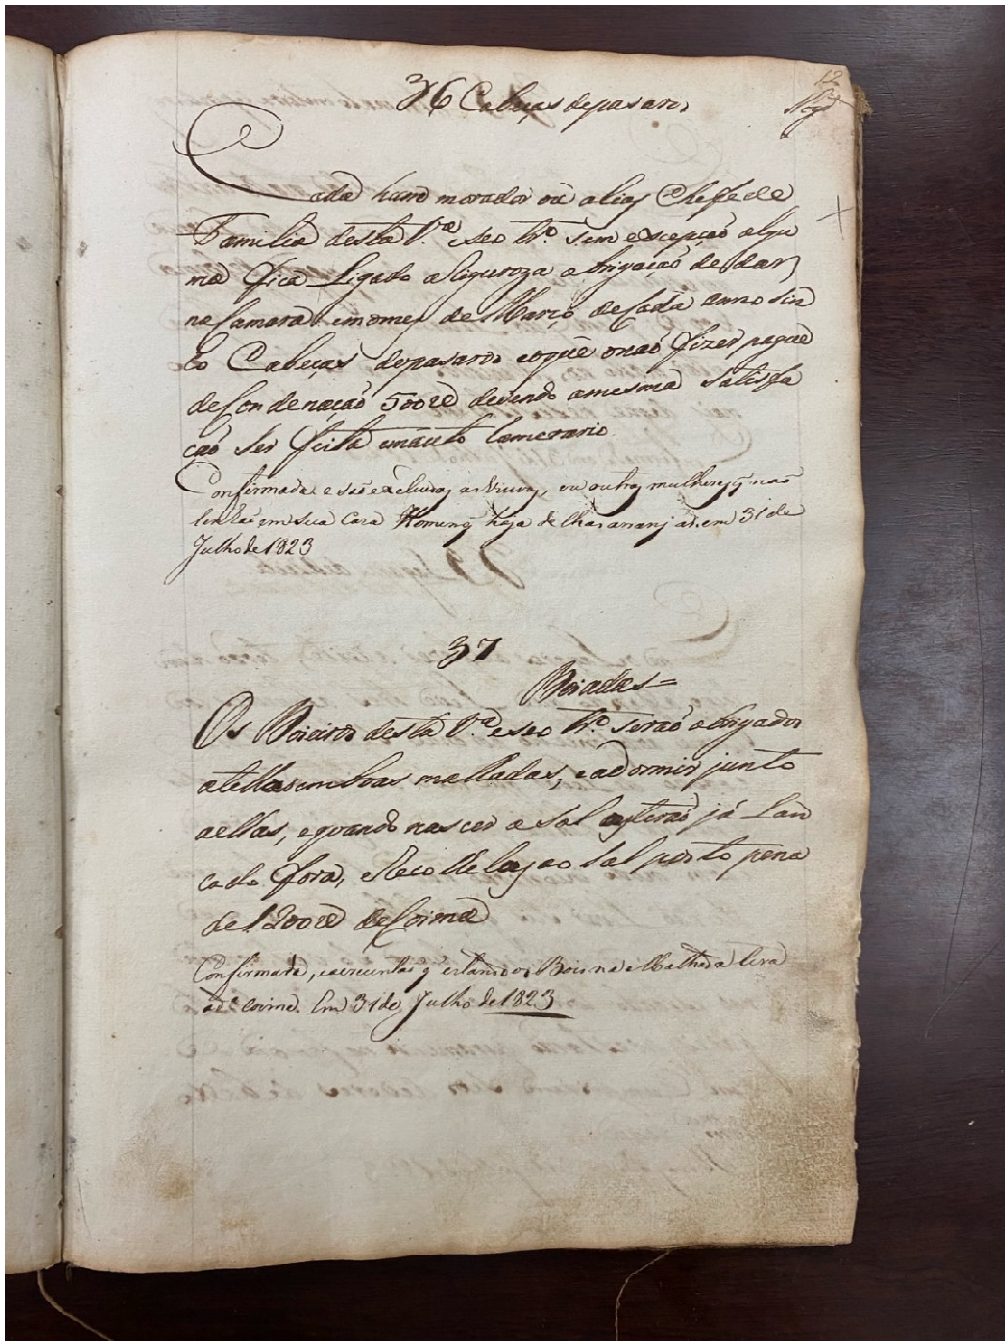 12
36 Cabeças depasaros
Cada hum morador ou alias Cheffe de
Familia desta V.ª e seo thr.º sem excepcaõ algu
ma fica Ligado a Riguroza obrigaçaõ de dar
na Camara emomes de Março de Cada anno sin
co Cabeças depasaros eoque onaõ fizer pagara
deCondenaçaõ 500 devendo amesma Satisfa
çaõ ser feita emacto Camerario
Confirmada e saõ excluidas as Viuvas, ou outras mulheres q naõ
tenhaõ em sua Caza Homens q haja de lhas arranjar. em 31 de
Julho de 1823
37
Boiadas =
Os Boieiros desta V.ª e seo thr.º seraõ obrigados
atellas em boas malhadas, e adormir junto
aellas, equando nascer o Sol as teraõ já Lan
cado fora, e Recolhelas ao Sol posto pena
de 1200 de Coima
Confirmada, e estando os Bois na Malhada
coima. Em 31 de Julho de 1823